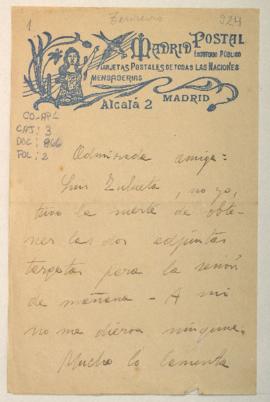 1
324
MADRID POSTAL
ESCRITORIO PÚBLICO
TARJETAS POSTALES DE TODAS LAS NACIONES
MENSAGERIAS
Alcalá 2 MADRID
CO-APL
CAJ: 3
DOC: 866
FOL: 2
Admirada amiga:
Luis Zulueta, no yo,
tuvo la suerte de obte-
ner las dos adjuntas
targetas para la sesión
de mañana - A mi
no me dieron ninguna.
Mucho lo lamenta